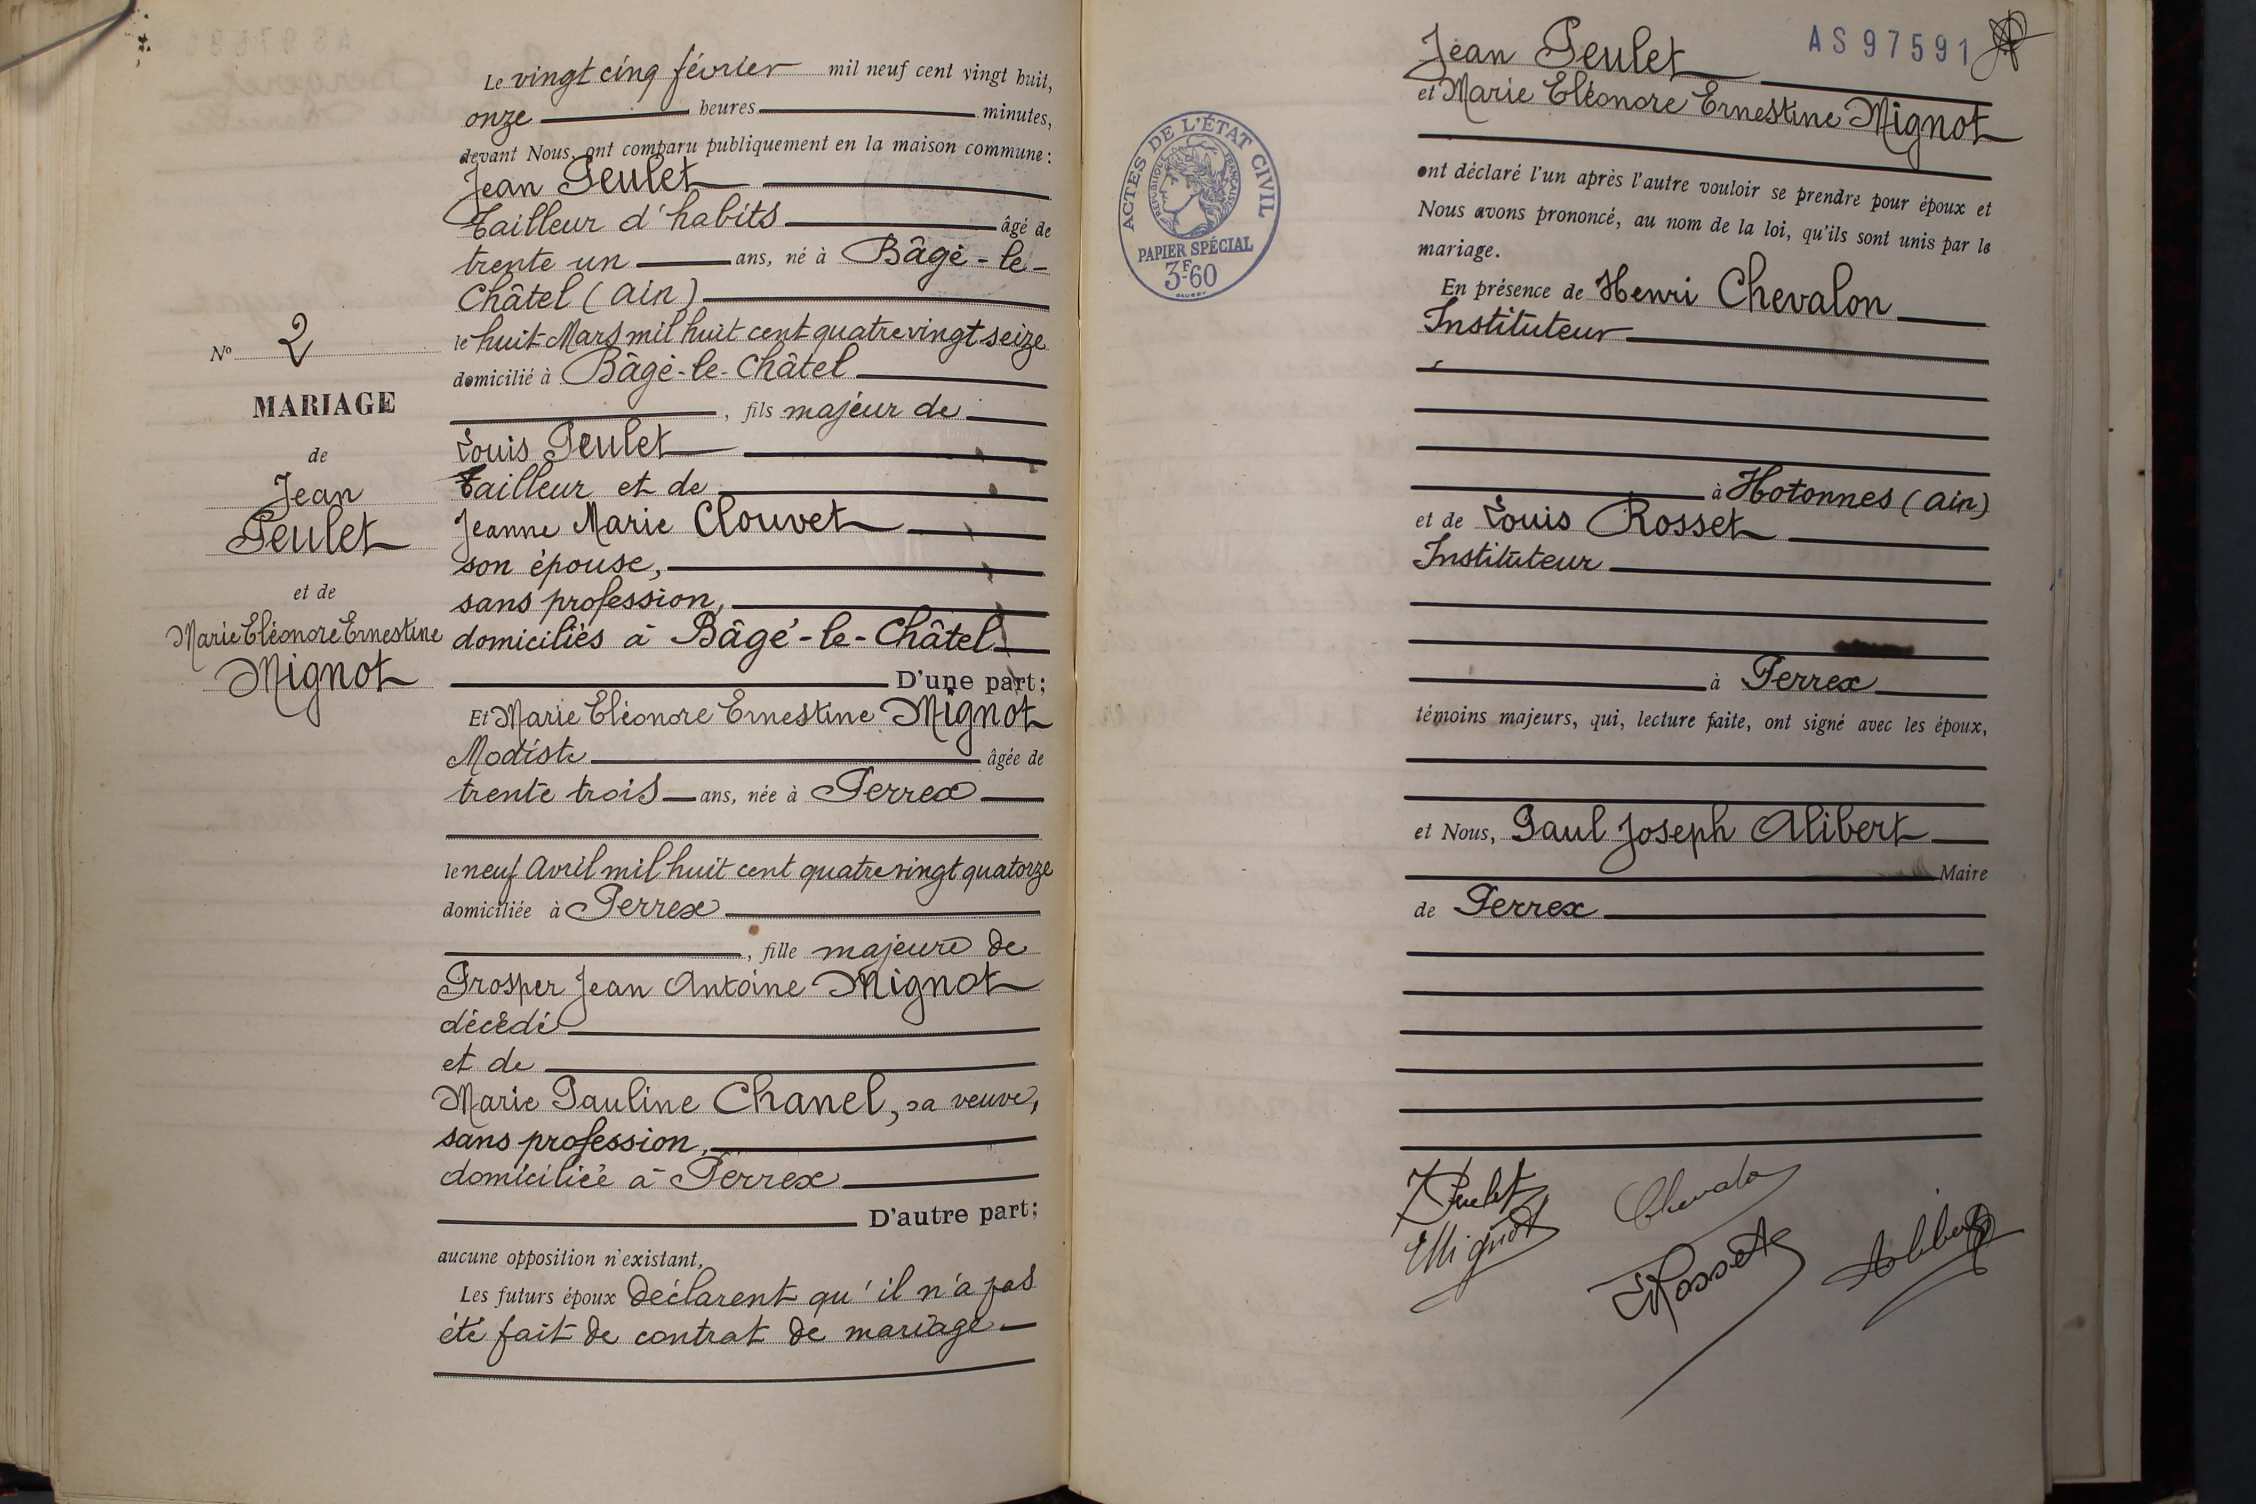 Le vingt cinq février mil neuf cent vingt huit,
onze heures minutes,
devant Nous, ont comparu publiquement en la maison commune :
Jean Peulet
tailleur d'habits âgé de
trente un ans, né à Bâgé-le-
Châtel (Ain)
le huit Mars mil huit cent quatre vingt seize
domicilié à Bâgé-le-Châtel
, fils majeur de
Louis Peulet
tailleur et de
Jeanne Marie Clouvet
son épouse,
sans profession,
domiciliés à Bâgé-le-Châtel
D'une part;
Nº 2
MARIAGE
de
Jean
Peulet
et de
Marie Eléonore Ernestine
Mignot
Et Marie Eléonore Ernestine Mignot
Modiste âgée de
trente trois ans, née à Perrex
le neuf Avril mil huit cent quatre vingt quatorze
domiciliée à Perrex
, fille majeure de
Prosper Jean Antoine Mignot
décédé
et de
Marie Pauline Chanel, sa veuve,
sans profession,
domiciliée à Perrex
D'autre part;
aucune opposition n'existant,
Les futurs époux déclarent qu'il n'a pas
été fait de contrat de mariage
AS97591
ACTES DE L'ÉTAT CIVIL
RÉPUBLIQUE FRANÇAISE
PAPIER SPÉCIAL
3F60
Jean Peulet
et Marie Eléonore Ernestine Mignot
ont déclaré l'un après l'autre vouloir se prendre pour époux et
Nous avons prononcé, au nom de la loi, qu'ils sont unis par le
mariage.
En présence de Henri Chevalon
Instituteur
à Hotonnes (Ain)
et de Louis Rosset
Instituteur
à Perrex
témoins majeurs, qui, lecture faite, ont signé avec les époux,
et Nous, Paul Joseph Alibert
Maire
de Perrex
Peulet
Chevalon
EMignot
Rosset
Alibert